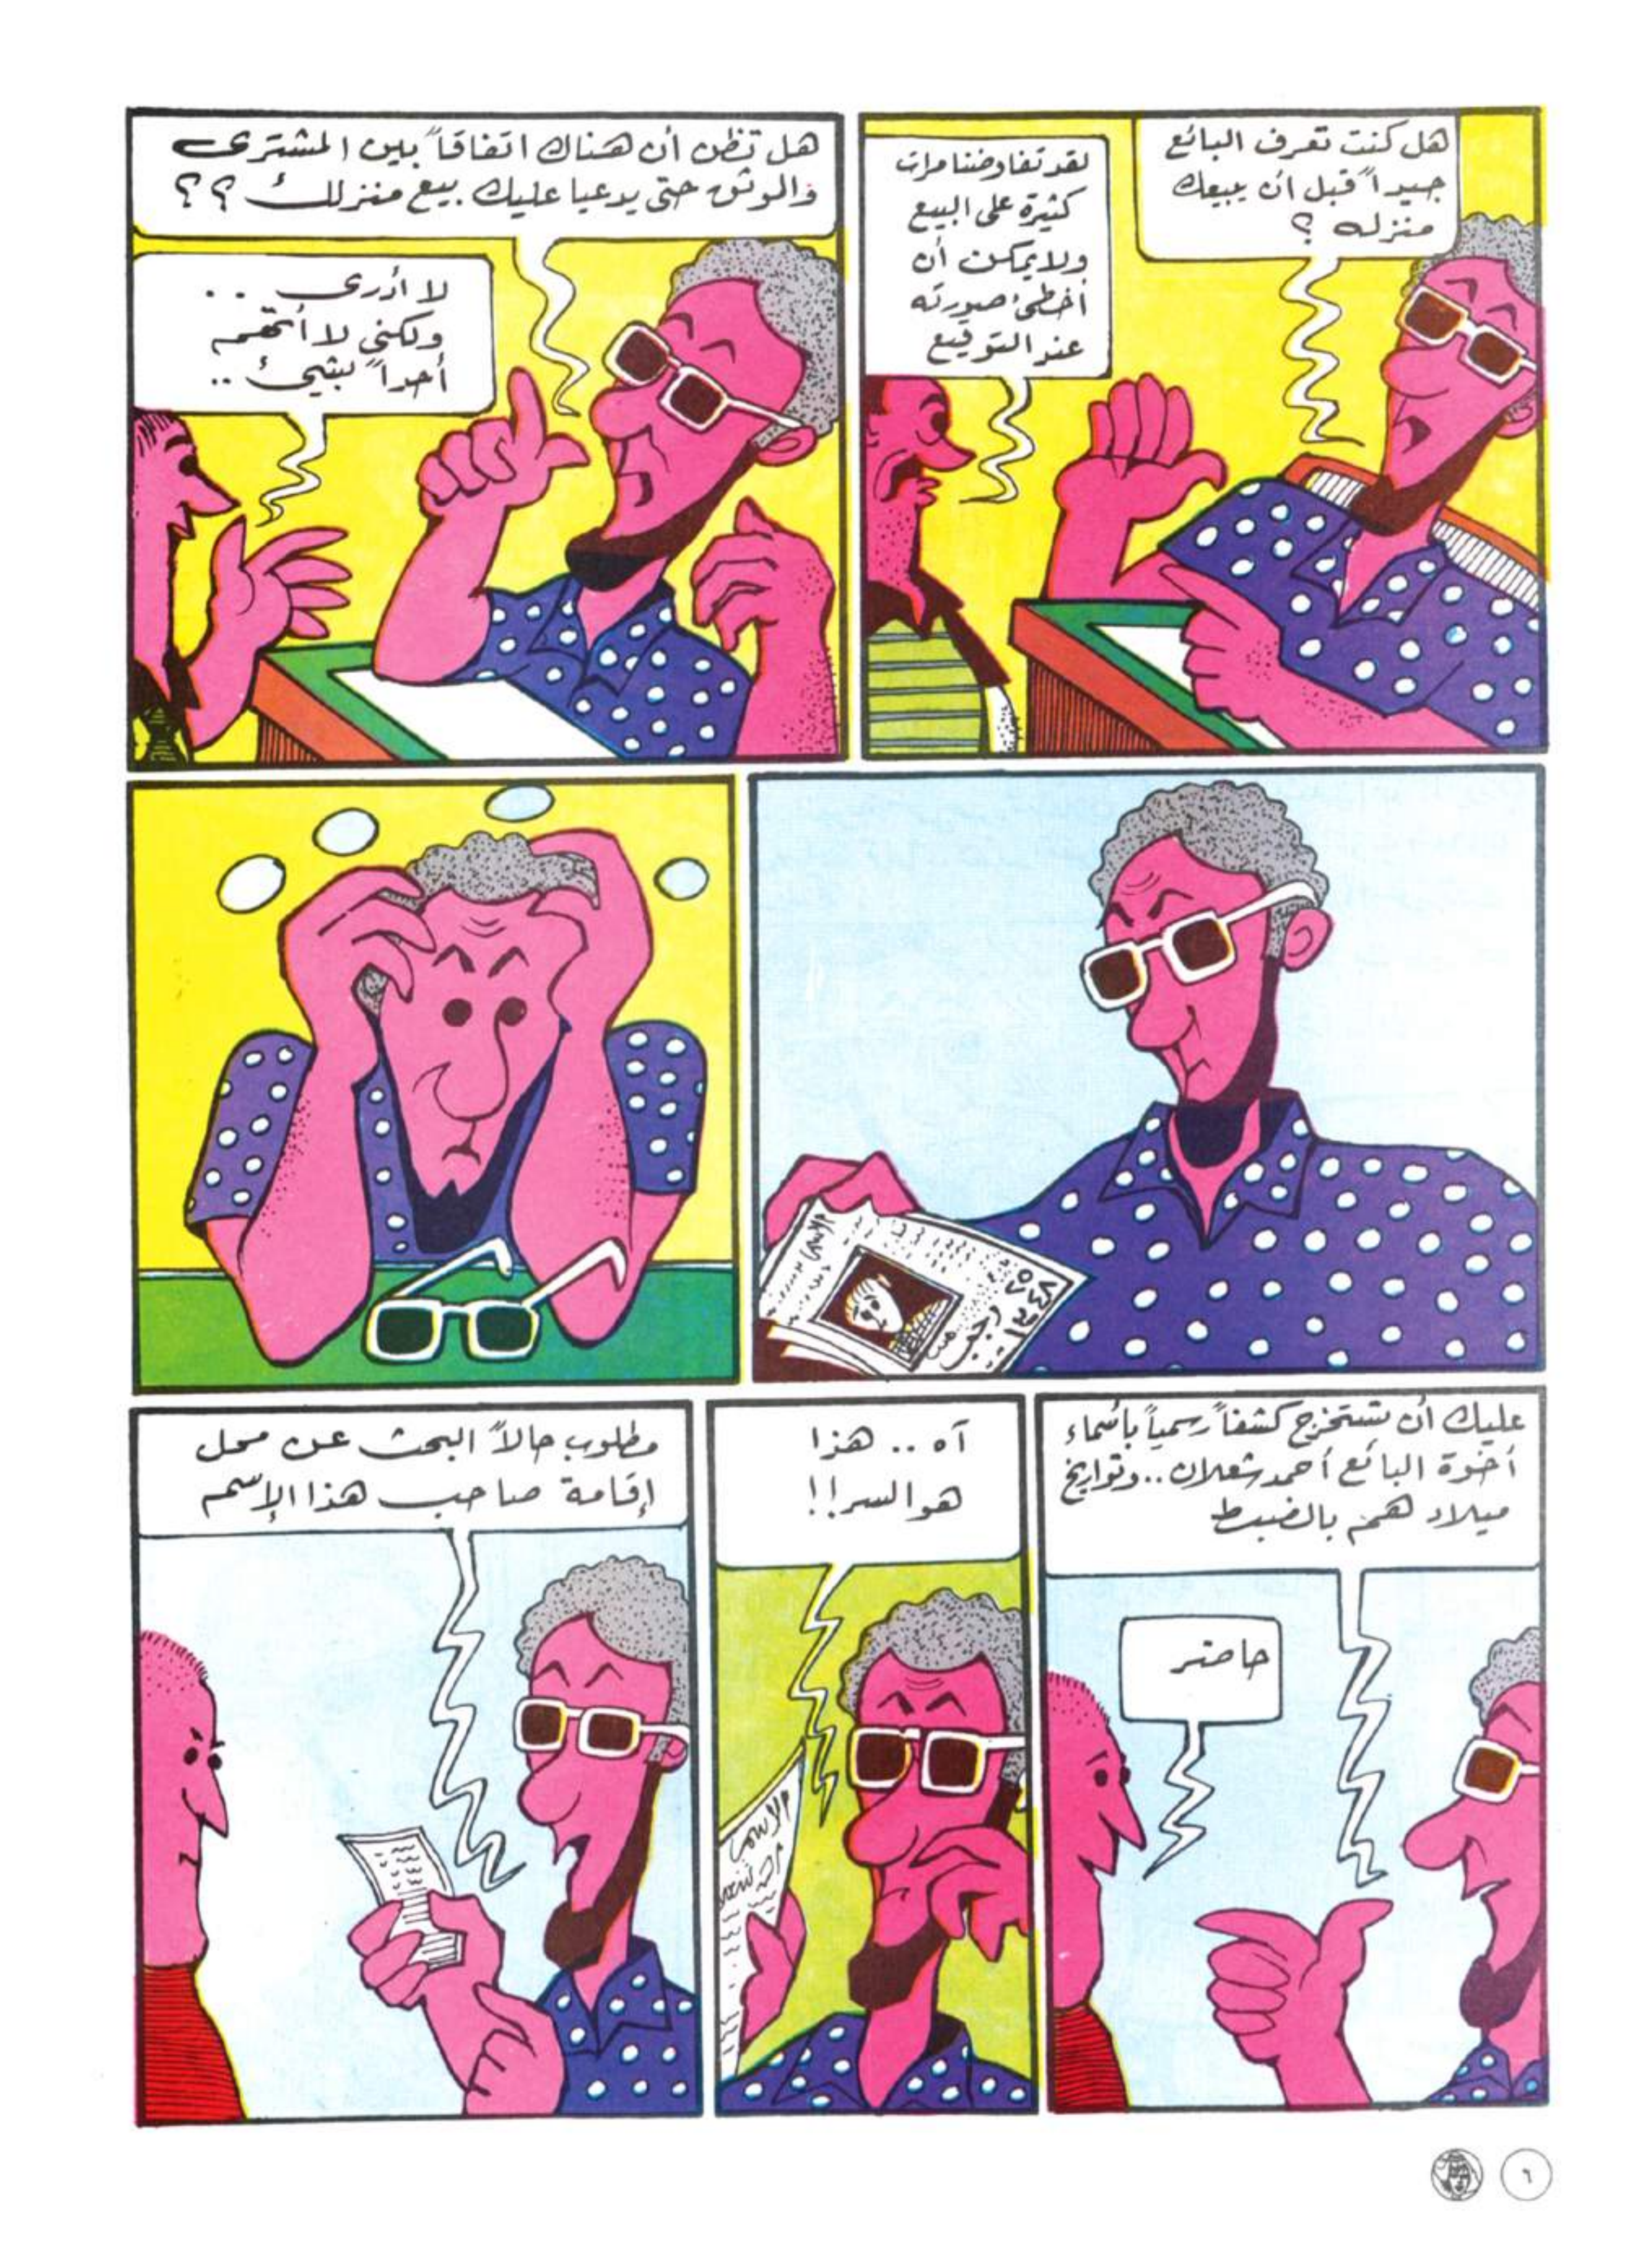 هل كنت تعرف البائع
جيداً قبل أن يبيعك
منزله ؟
لقد تفاوضنا مرات
كثيرة على البيع
ولا يمكن أن
أخطئ صورته
عند التوقيع
هل تظن أن هناك اتفاقاً بين المشترى
والموثق حتى يدعيا عليك بيع منزلك ؟ ؟
لا أدرى . .
ولكنى لا أتهم
أحداً بشيء ..
الاسم
٢٥
رجب
١٣٤٨
عليك أن تستخرج كشفاً رسمياً بأسماء
أخوة البائع أحمد شعلان .. وتواريخ
ميلاد هم بالضبط
حاضر
آه .. هذا
هو السر !!
الاسم
مطلوب حالاً البحث عن محل
إقامة صاحب هذا الإسم
٦